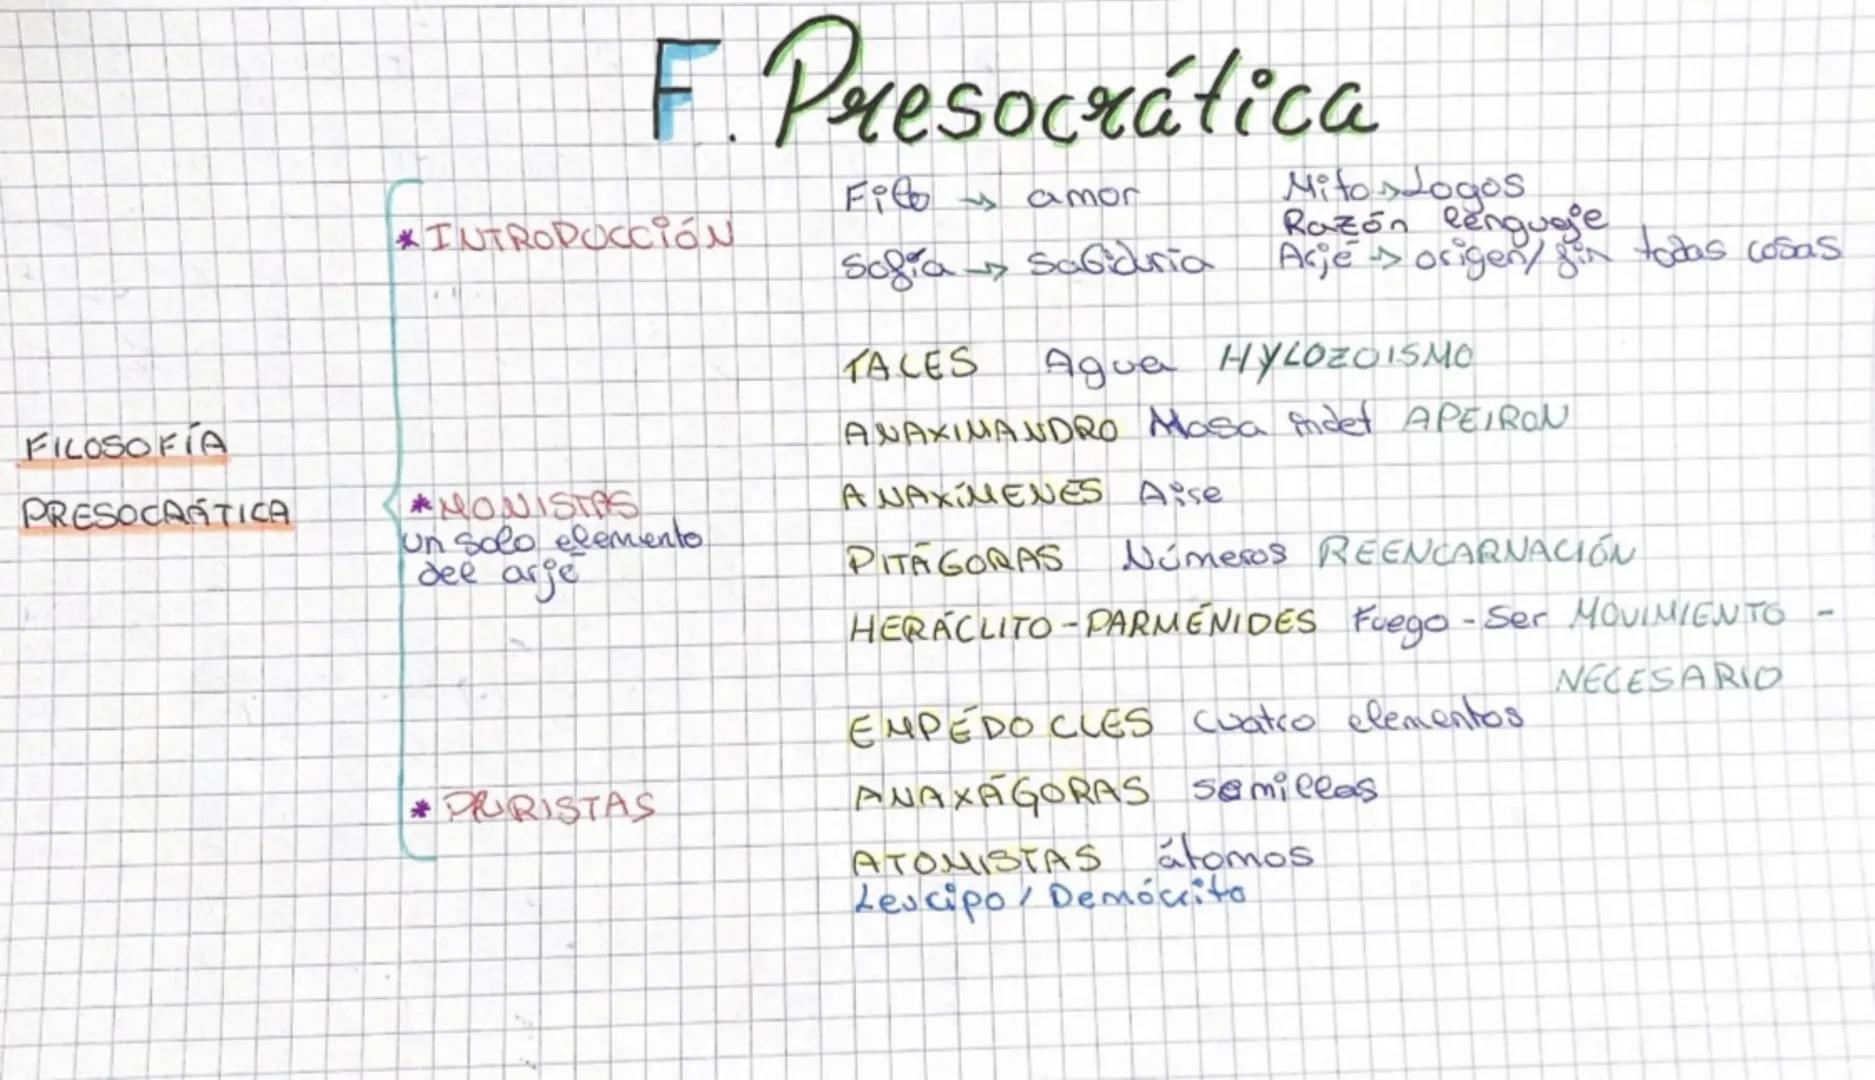 F. Presocrática
Filo → amor
Mito → Logos
* INTRODUCCIÓN
Razón lenguaje
Sofía → Sabiduría
Arjé → origen/fin todas cosas
TALES Agua HYLOZOISMO
ANAXIMANDRO Masa indet APEIRON
FILOSOFÍA
PRESOCRÁTICA
* MONISTAS
un solo elemento
del arjé
ANAXÍMENES Aire
PITÁGORAS Números REENCARNACIÓN
HERÁCLITO - PARMÉNIDES Fuego - Ser MOVIMIENTO -
NECESARIO
EMPÉDOCLES Cuatro elementos
* PLURISTAS
ANAXÁGORAS semillas
ATOMISTAS átomos
Leucipo / Demócrito